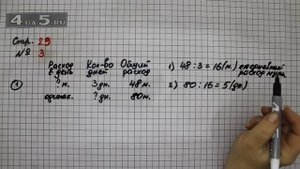 4 DA 5
Стр. 29
№ 3
Расход в день Кол-во дней Общий расход
1 ? м. 3 дн. 48 м.
одинак. ? дн. 80 м.
1) 48 : 3 = 16 (м.) ежедневный расход муки
2) 80 : 16 = 5 (дн)